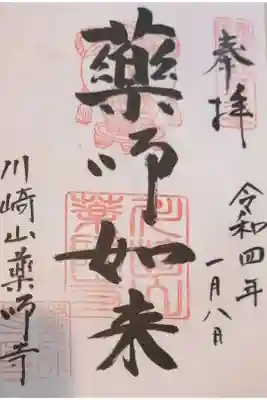 奉拝
令和四年
一月八日
藥師如来
川崎山薬師寺